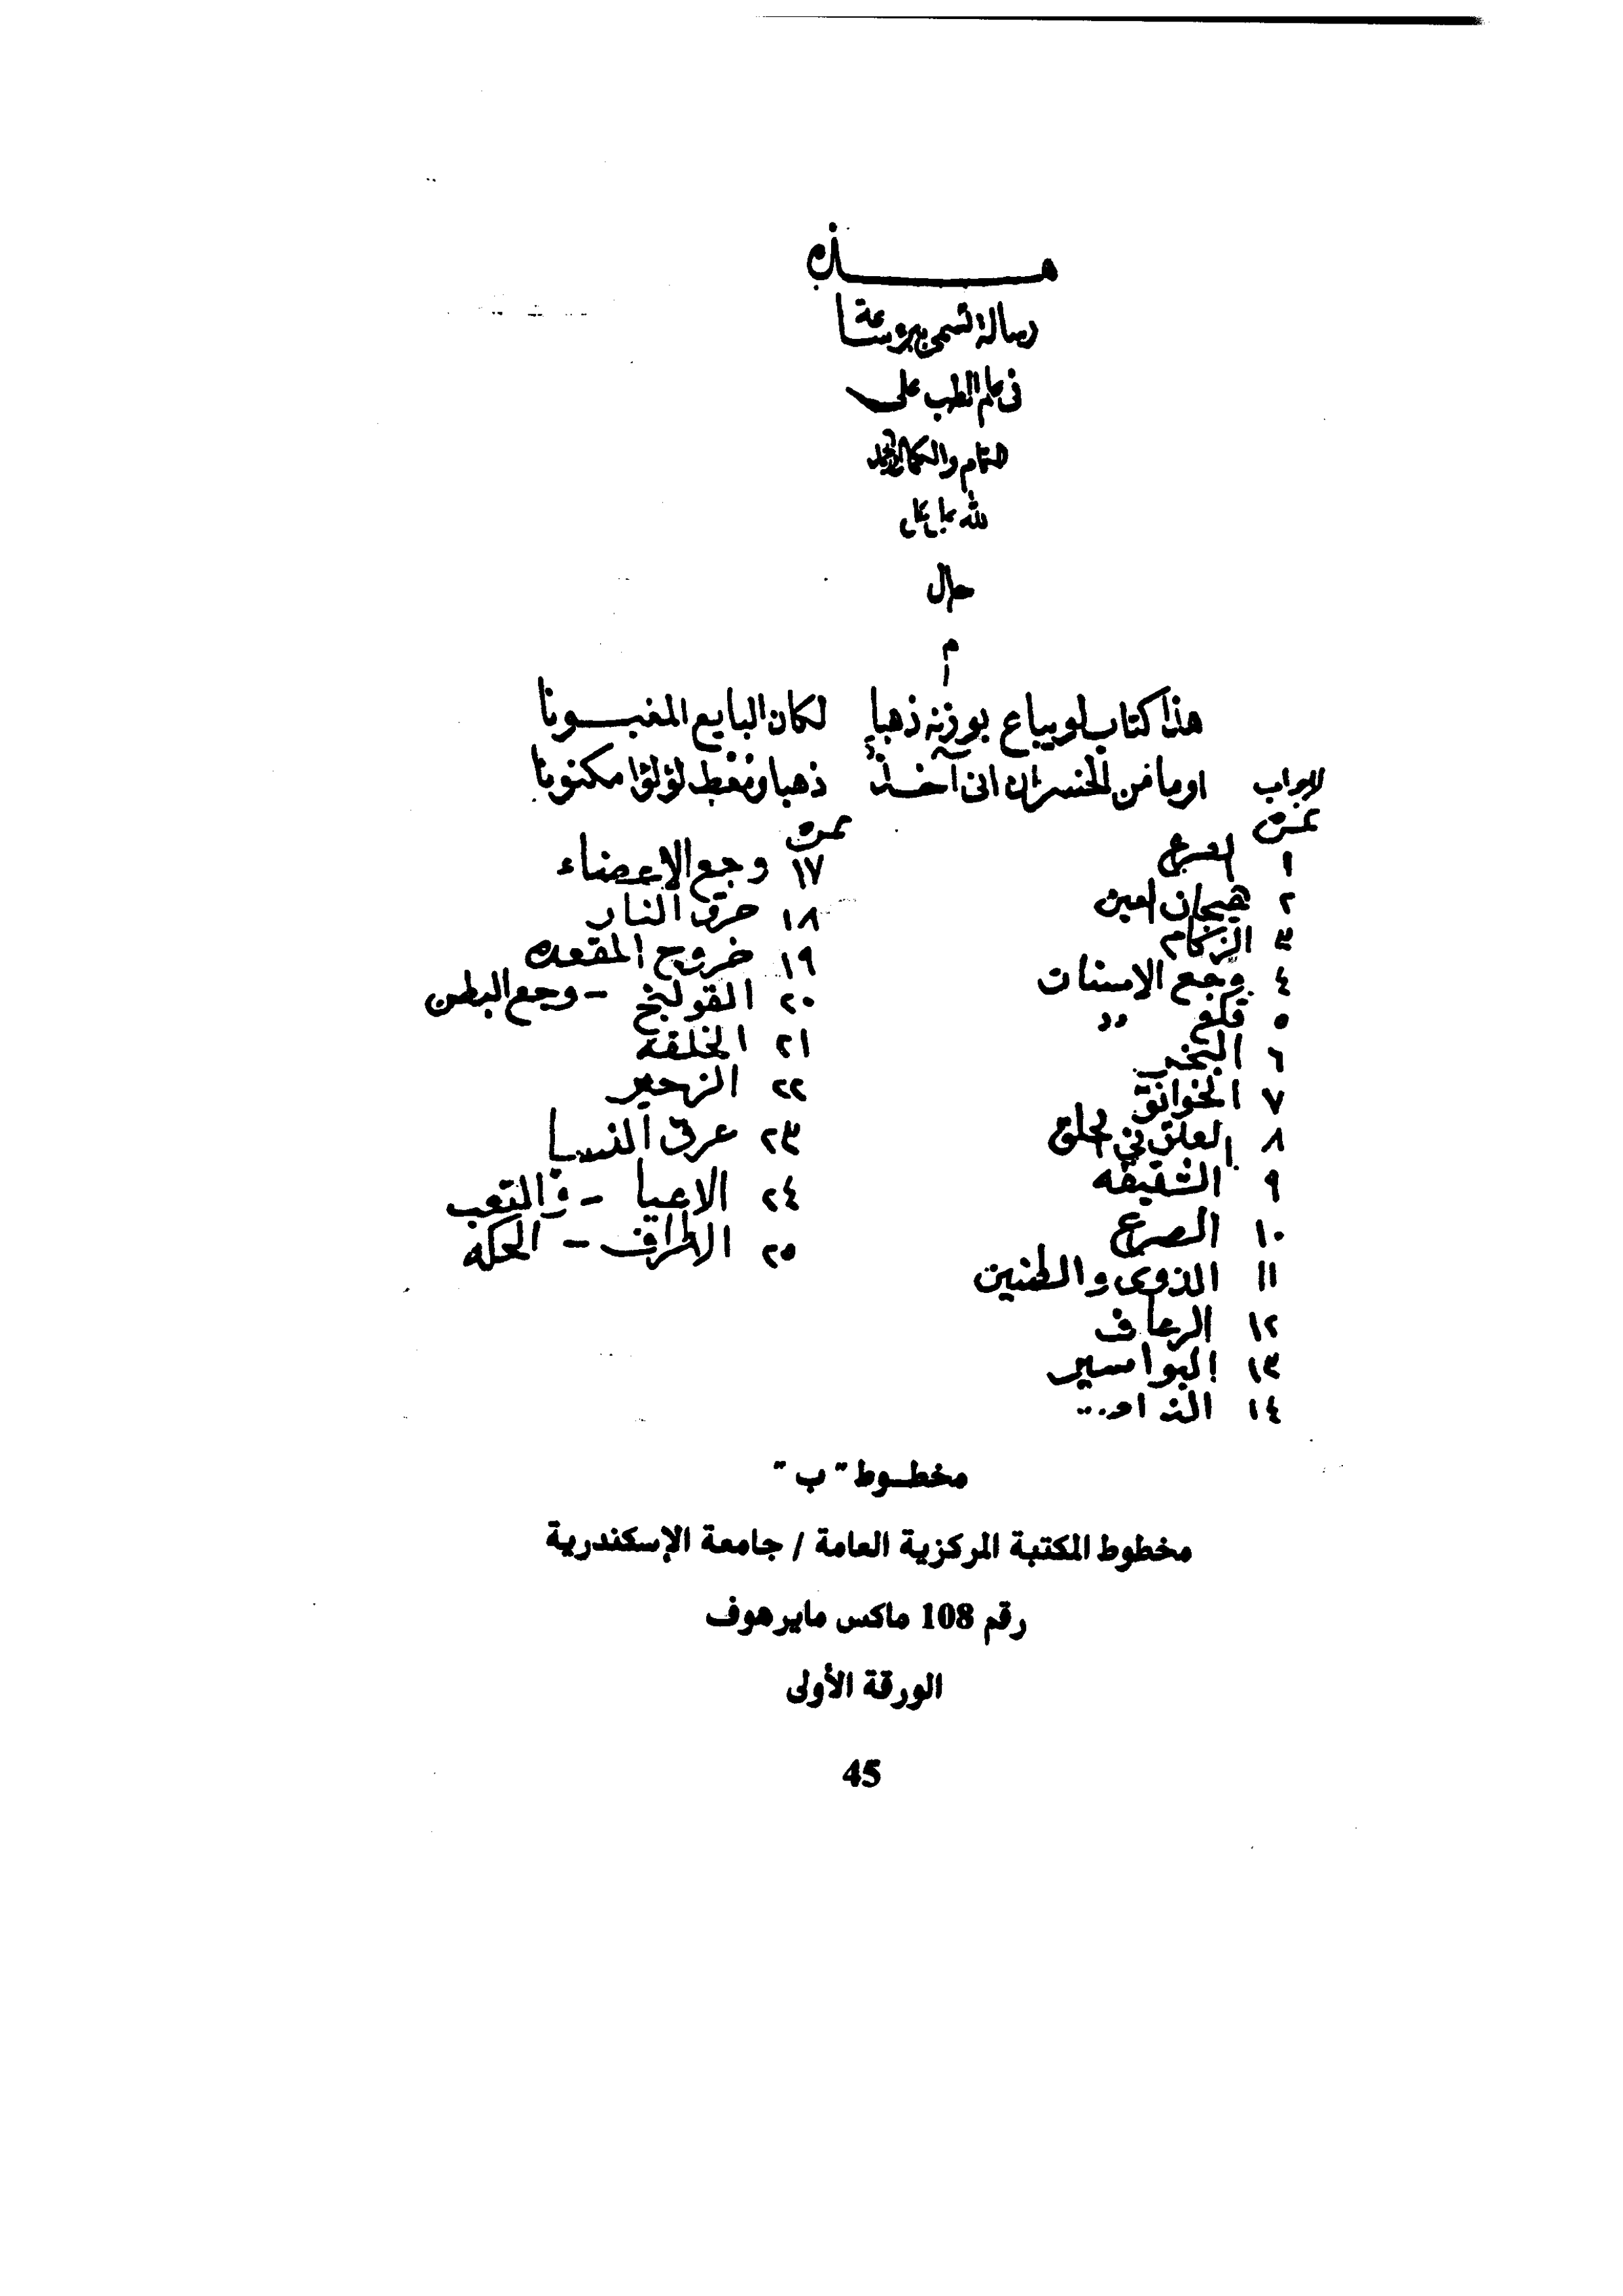 هـــــذه
رسالة تسمى ببرؤ ساعة
فى علم الطب على
التمام والكمال والحمد
لله على كل
حال
م
هذا كتاب لو يباع بوزنه ذهبا لكان البايع المغبـــونا
اوما من الخسران انى آخـــذ ذهبا ومعط لؤلؤا مكنونا
الابواب
نمـرة
نمرة
١
٢ هيجان العين
٣ الزكام
٤ وجع الاسنان
٥ قلع ״
٦ البخر
٧ الخوانق
٨ العلق في الحلق
٩ الشقيقه
١٠ الصرع
١١ الذوى والطنين
١٢ الرعاف
١٣ البواسير
١٤
١٧ وجع الاعضاء
١٨ حرق النار
١٩ خروج المقعده
٢٠ القولنج - وجع البطن
٢١ الخلفة
٢٢ الزحير
٢٣ عرق النسا
٢٤ الاعيا - والتعب
٢٥ الاطراف - الحكه
مخطــوط " ب "
مخطوط المكتبة المركزية العامة / جامعة الإسكندرية
رقم 108 ماكس مايرهوف
الورقة الأولى
45